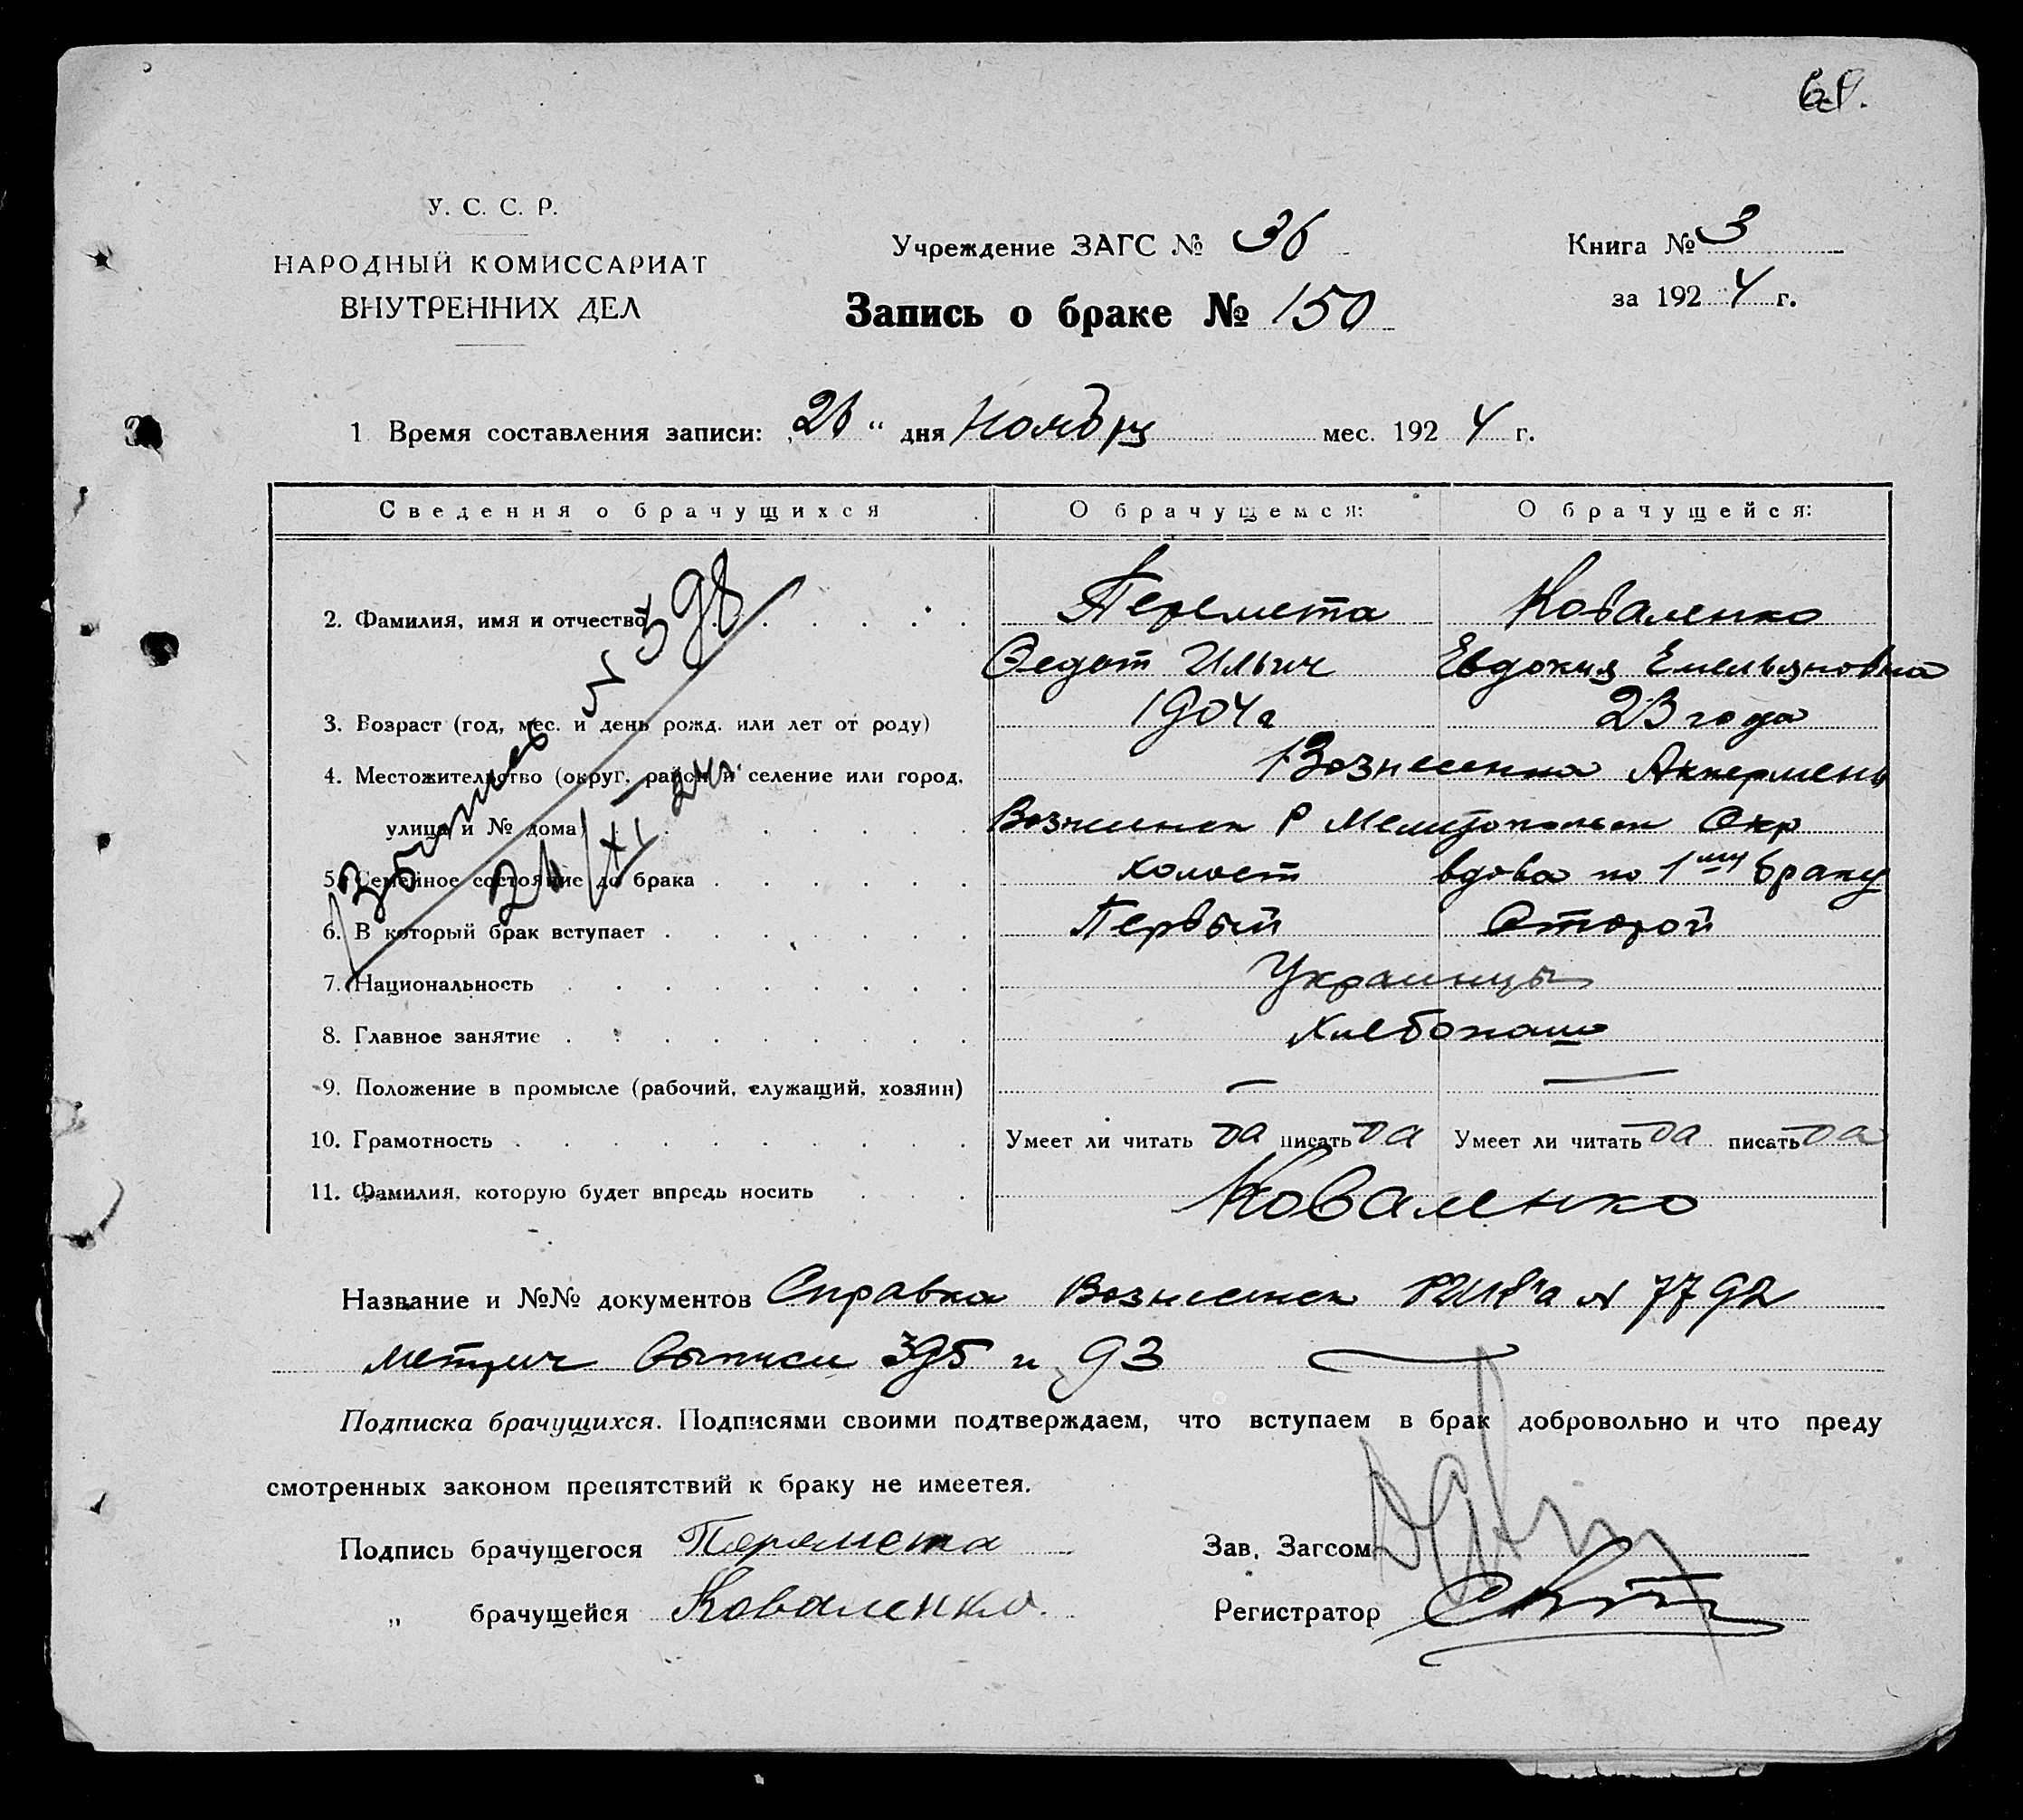 У. С. С. Р.
НАРОДНЫЙ КОМИССАРИАТ
ВНУТРЕННИХ ДЕЛ
Учреждение ЗАГС № 36
Книга № 3
за 1924 г.
Запись о браке № 150
1 Время составления записи: „26“ дня Ноября мес. 1924 г.
Сведения о брачущихся О брачущемся: О брачущейся:
2. Фамилия, имя и отчество Перемета Коваленко
Федот Ильич Евдокия Емельяновна
3. Возраст (год, мес. и день рожд. или лет от роду) 1904 г 23 года
4. Местожительство (округ, район и селение или город, Вознесенка Аккермень
улица и № дома) Вознесенск Р Мелитопольск Окр
5. Семейное состояние до брака холост вдова по 1му браку
6. В который брак вступает Первый Второй
7. Национальность Украинцы
8. Главное занятие Хлебопаш
9. Положение в промысле (рабочий, служащий, хозяин) — —
10. Грамотность Умеет ли читать да писать да Умеет ли читать да писать да
11. Фамилия, которую будет впредь носить Коваленко
№ 598
26/XI 24 г.
Название и №№ документов Справка Вознесенск РИК'а № 7792
метрич выписи 395 и 93
Подписка брачущихся. Подписями своими подтверждаем, что вступаем в брак добровольно и что преду
смотренных законом препятствий к браку не имеется.
Подпись брачущегося Перемета Зав. Загсом
„ брачущейся Коваленко. Регистратор